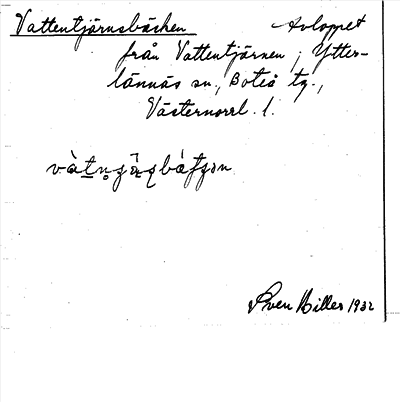 Vattentjärnsbäcken Avloppet
från Vattentjärnen, Ytter-
lännäs sn., Boteå tg.,
Västernorrl. l.
Sven Hiller 1932